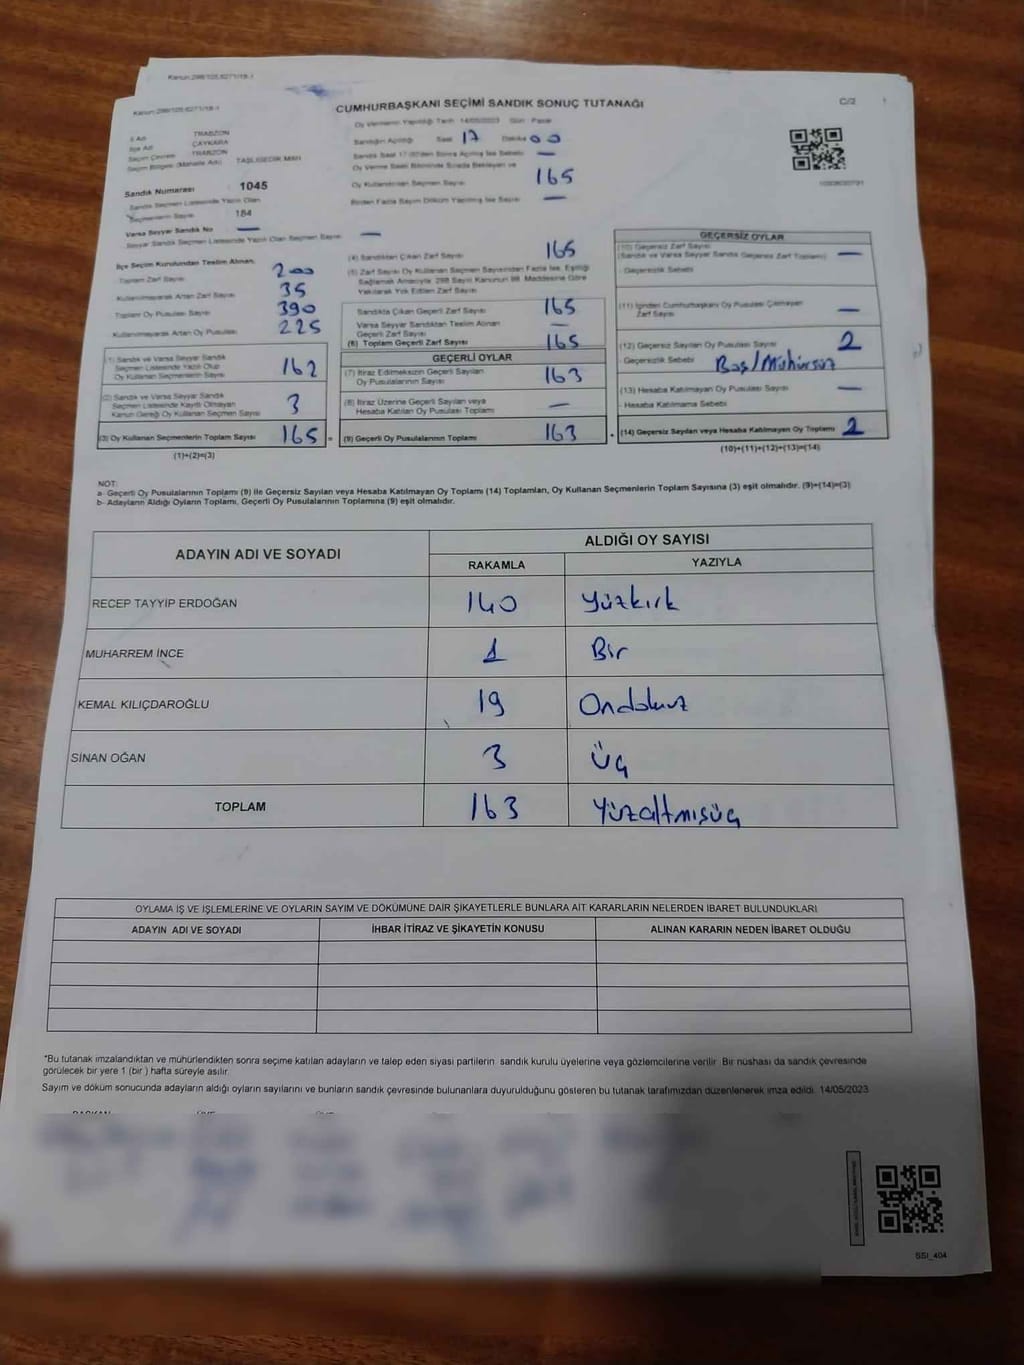 Kanun:298/105,6271/19-1
Kanun:298/105,6271/19-1
CUMHURBAŞKANI SEÇİMİ SANDIK SONUÇ TUTANAĞI
C/2 1
İl Adı TRABZON
İlçe Adı ÇAYKARA
Seçim Çevresi TRABZON
Seçim Bölgesi (Mahalle Adı) TAŞLIGEDİK MAH
Sandık Numarası 1045
Sandık Seçmen Listesinde Yazılı Olan
Seçmenlerin Sayısı 184
Varsa Seyyar Sandık No —
Seyyar Sandık Seçmen Listesinde Yazılı Olan Seçmen Sayısı —
Oy Vermenin Yapıldığı Tarih 14/05/2023 Gün : Pazar
Sandığın Açıldığı Saat 17 Dakika 00
Sandık Saat 17.00'den Sonra Açılmış İse Sebebi —
Oy Verme Saati Bitiminde Sırada Bekleyen ve
Oy Kullandırılan Seçmen Sayısı 165
Birden Fazla Sayım Döküm Yapılmış İse Sayısı —
İlçe Seçim Kurulundan Teslim Alınan,
Toplam Zarf Sayısı 200
Kullanılmayarak Artan Zarf Sayısı 35
Toplam Oy Pusulası Sayısı 390
Kullanılmayarak Artan Oy Pusulası 225
(1) Sandık ve Varsa Seyyar Sandık
Seçmen Listesinde Yazılı Olup
Oy Kullanan Seçmenlerin Sayısı 162
(2) Sandık ve Varsa Seyyar Sandık
Seçmen Listesinde Kayıtlı Olmayan
Kanun Gereği Oy Kullanan Seçmen Sayısı 3
(3) Oy Kullanan Seçmenlerin Toplam Sayısı 165
(1)+(2)=(3)
(4) Sandıktan Çıkan Zarf Sayısı 165
(5) Zarf Sayısı Oy Kullanan Seçmen Sayısından Fazla İse, Eşitliği
Sağlamak Amacıyla 298 Sayılı Kanunun 98. Maddesine Göre
Yakılarak Yok Edilen Zarf Sayısı
Sandıkta Çıkan Geçerli Zarf Sayısı 165
Varsa Seyyar Sandıktan Teslim Alınan
Geçerli Zarf Sayısı —
(6) Toplam Geçerli Zarf Sayısı 165
GEÇERLİ OYLAR
(7) İtiraz Edilmeksizin Geçerli Sayılan
Oy Pusulalarının Sayısı 163
(8) İtiraz Üzerine Geçerli Sayılan veya
Hesaba Katılan Oy Pusulası Toplamı —
(9) Geçerli Oy Pusulalarının Toplamı 163
GEÇERSİZ OYLAR
(10) Geçersiz Zarf Sayısı
(Sandık ve Varsa Seyyar Sandık Geçersiz Zarf Toplamı) —
Geçersizlik Sebebi
(11) İçinden Cumhurbaşkanı Oy Pusulası Çıkmayan
Zarf Sayısı —
(12) Geçersiz Sayılan Oy Pusulası Sayısı 2
Geçersizlik Sebebi Boş/Mühürsüz
(13) Hesaba Katılmayan Oy Pusulası Sayısı —
Hesaba Katılmama Sebebi
(14) Geçersiz Sayılan veya Hesaba Katılmayan Oy Toplamı 2
(10)+(11)+(12)+(13)=(14)
NOT:
a- Geçerli Oy Pusulalarının Toplamı (9) ile Geçersiz Sayılan veya Hesaba Katılmayan Oy Toplamı (14) Toplamları, Oy Kullanan Seçmenlerin Toplam Sayısına (3) eşit olmalıdır. (9)+(14)=(3)
b- Adayların Aldığı Oyların Toplamı, Geçerli Oy Pusulalarının Toplamına (9) eşit olmalıdır.
ADAYIN ADI VE SOYADI ALDIĞI OY SAYISI
RAKAMLA YAZIYLA
RECEP TAYYİP ERDOĞAN 140 Yüzkırk
MUHARREM İNCE 1 Bir
KEMAL KILIÇDAROĞLU 19 Ondokuz
SİNAN OĞAN 3 Üç
TOPLAM 163 Yüzaltmışüç
OYLAMA İŞ VE İŞLEMLERİNE VE OYLARIN SAYIM VE DÖKÜMÜNE DAİR ŞİKAYETLERLE BUNLARA AİT KARARLARIN NELERDEN İBARET BULUNDUKLARI
ADAYIN ADI VE SOYADI İHBAR İTİRAZ VE ŞİKAYETİN KONUSU ALINAN KARARIN NEDEN İBARET OLDUĞU
*Bu tutanak imzalandıktan ve mühürlendikten sonra seçime katılan adayların ve talep eden siyasi partilerin sandık kurulu üyelerine veya gözlemcilerine verilir. Bir nüshası da sandık çevresinde
görülecek bir yere 1 (bir) hafta süreyle asılır.
Sayım ve döküm sonucunda adayların aldığı oyların sayılarını ve bunların sandık çevresinde bulunanlara duyurulduğunu gösteren bu tutanak tarafımızdan düzenlenerek imza edildi. 14/05/2023
BAŞKAN ÜYE ÜYE
SSI_404